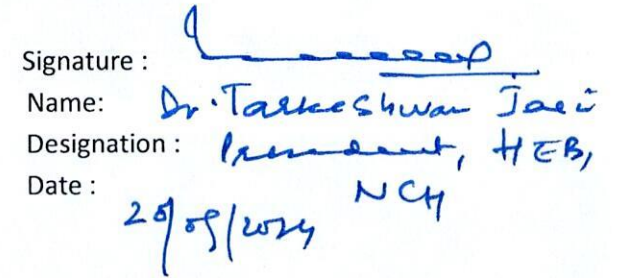 Signature :
Name: Dr. Tarkeshwar Jain
Designation : President, HEB,
NCH
Date :